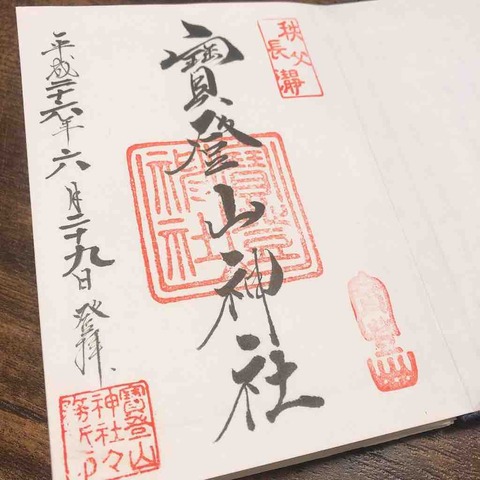 秩父
長瀞
寶登山神社
平成二十六年六月二十九日 登拝、
寶登山
神社々
務所印